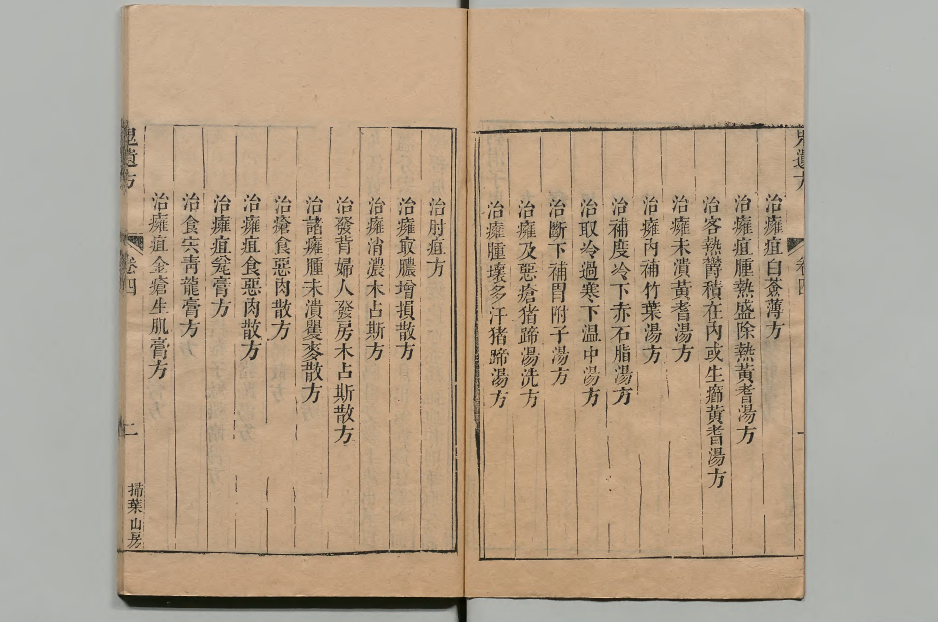 鬼遺方
卷四
一
治癰疽白蘞薄方
治癰疽腫熱盛除熱黃耆湯方
治客熱鬱積在內或生癤黃耆湯方
治癰未潰黃耆湯方
治癰內補竹葉湯方
治補虔冷下赤石脂湯方
治取冷過寒下溫中湯方
治斷下補胃附子湯方
治癰及惡瘡猪蹄湯洗方
治癰腫壞多汗猪蹄湯方
治肘疽方
治癰取膿增損散方
治癰消濃木占斯方
治發背婦人發房木占斯散方
治諸癰腫未潰瞿麥散方
治瘡食惡肉散方
治癰疽食惡肉散方
治癰疽兌膏方
治食肉青龍膏方
治癰疽金瘡生肌膏方
鬼遺方
卷四
二
掃葉山房